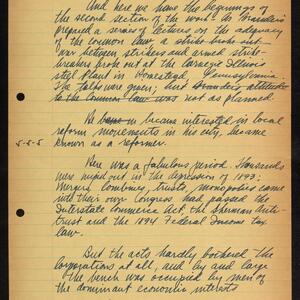 And here we have the beginnings of
the second section of the work. As Brandeis
prepared a series of lectures on the adequacy
of the common law a strike broke out
war between strikers and armed strike-
breakers broke out at the Carnegie Illinois
steel plant in Homestead, Pennsylvania.
The talks were given; but Brandeis attitude
to the Common law was not as planned.
We became interested in local
reform movements in his city, became
known as a reformer.
5-5-5
Here was a fabulous period. Thousands
were wiped out in the depression of 1893;
Mergers, Combines, trusts, monopolies came
into their own. Congress had passed the
Interstate Commerce Act, the Sherman Anti-
trust and the 1894 Federal Income Tax
law.
But the acts hardly bothered the
corporations at all, and by and large
the bench was occupied by men of
the dominant economic interests